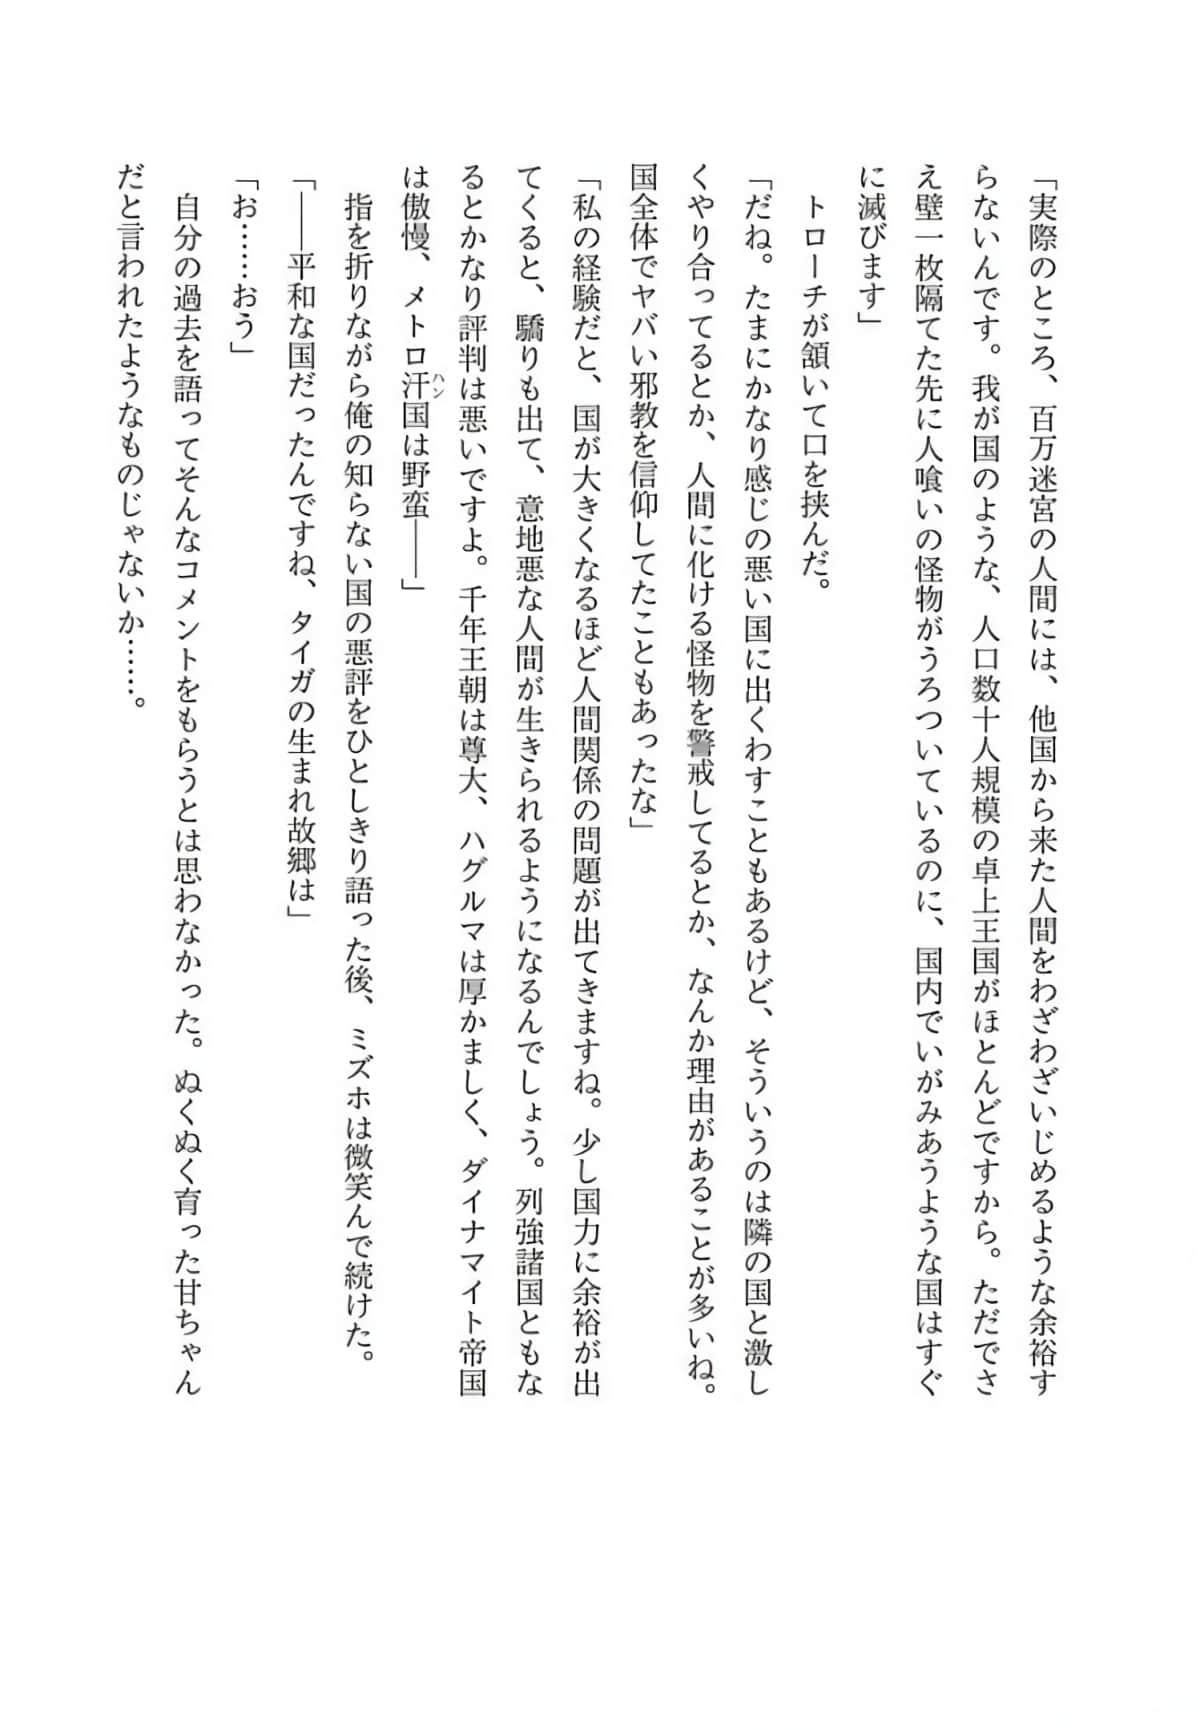 「実際のところ、百万迷宮の人間には、他国から来た人間をわざわざいじめるような余裕す
らないんです。我が国のような、人口数十人規模の卓上王国がほとんどですから。ただでさ
え壁一枚隔てた先に人喰いの怪物がうろついているのに、国内でいがみあうような国はすぐ
に滅びます」
　トローチが頷いて口を挟んだ。
「だね。たまにかなり感じの悪い国に出くわすこともあるけど、そういうのは隣の国と激し
くやり合ってるとか、人間に化ける怪物を警戒してるとか、なんか理由があることが多いね。
国全体でヤバい邪教を信仰してたこともあったな」
「私の経験だと、国が大きくなるほど人間関係の問題が出てきますね。少し国力に余裕が出
てくると、驕りも出て、意地悪な人間が生きられるようになるんでしょう。列強諸国ともな
るとかなり評判は悪いですよ。千年王朝は尊大、ハグルマは厚かましく、ダイナマイト帝国
は傲慢、メトロ汗国は野蛮――」
ハン
　指を折りながら俺の知らない国の悪評をひとしきり語った後、ミズホは微笑んで続けた。
「――平和な国だったんですね、タイガの生まれ故郷は」
「お……おう」
　自分の過去を語ってそんなコメントをもらうとは思わなかった。ぬくぬく育った甘ちゃん
だと言われたようなものじゃないか……。